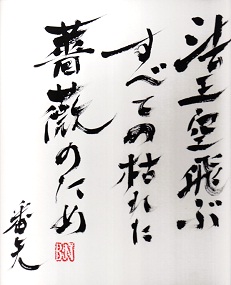 法王空飛ぶ
すべての枯れた
薔薇のため
番矢
BN